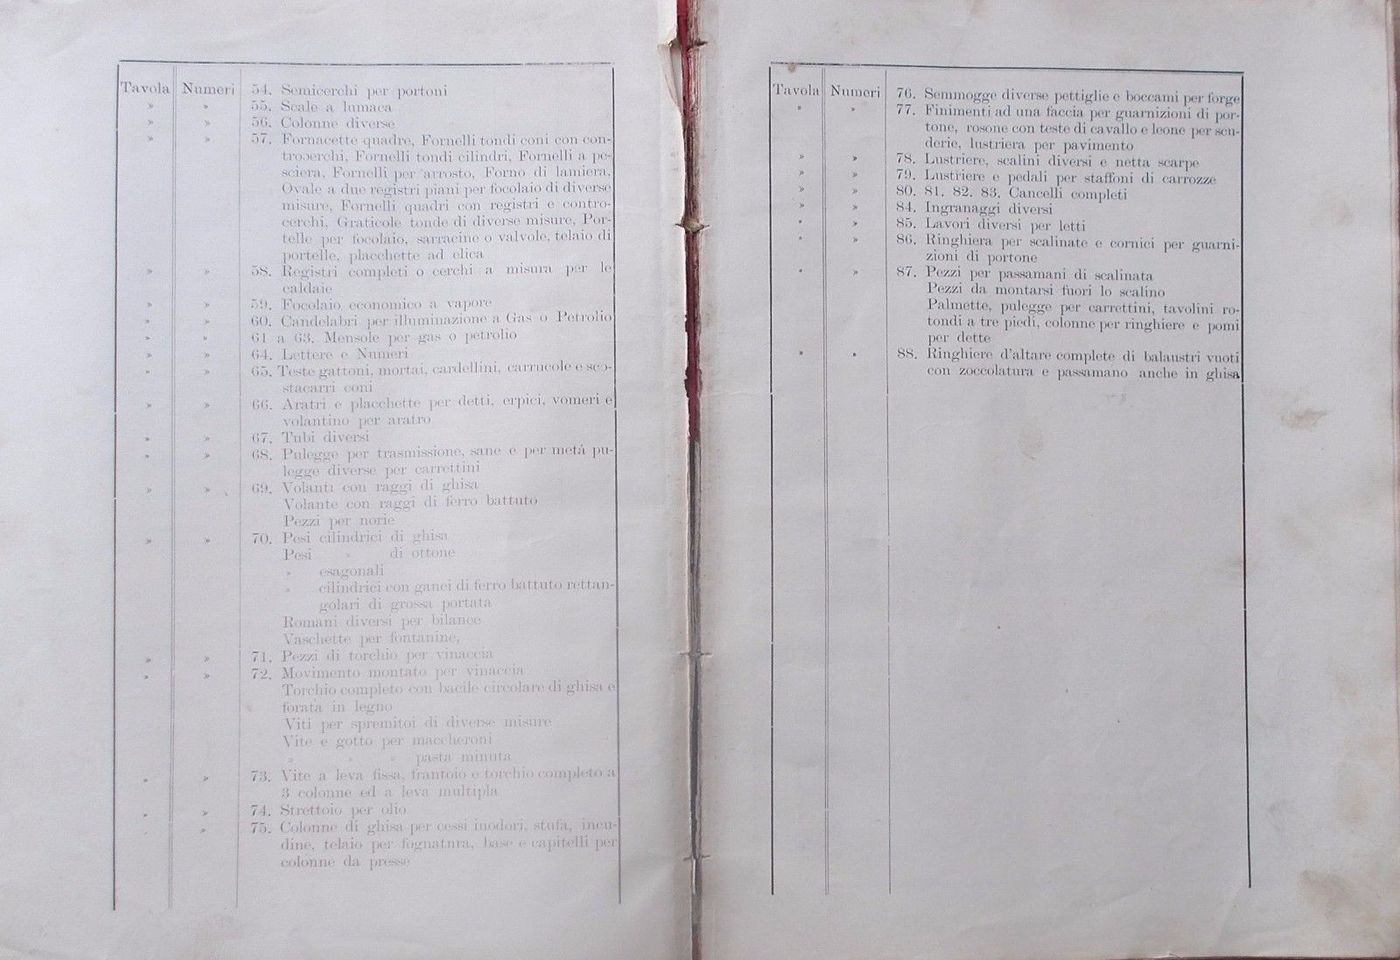 Tavola Numeri 54. Semicerchi per portoni
» » 55. Scale a lumaca
» » 56. Colonne diverse
» » 57. Fornacette quadre, Fornelli tondi coni con con-
troɔerchi, Fornelli tondi cilindri, Fornelli a pe-
sciera, Fornelli per arrosto, Forno di lamiera,
Ovale a due registri piani per focolaio di diverse
misure, Fornelli quadri con registri e contro-
cerchi, Graticole tonde di diverse misure, Por-
telle per focolaio, sarracine o valvole, telaio di
portelle, placchette ad elica
» » 58. Registri completi o cerchi a misura per le
caldaie
» » 59. Focolaio economico a vapore
» » 60. Candelabri per illuminazione a Gas o Petrolio
» » 61 a 63. Mensole per gas o petrolio
» » 64. Lettere e Numeri
» » 65. Teste gattoni, mortai, cardellini, carrucole e sco-
stacarri coni
» » 66. Aratri e placchette per detti, erpici, vomeri e
volantino per aratro
» » 67. Tubi diversi
» » 68. Pulegge per trasmissione, sane e per metá pu-
legge diverse per carrettini
» » 69. Volanti con raggi di ghisa
Volante con raggi di ferro battuto
Pezzi per norie
» » 70. Pesi cilindrici di ghisa
Pesi » di ottone
» esagonali
» cilindrici con ganci di ferro battuto rettan-
golari di grossa portata
Romani diversi per bilance
Vaschette per fontanine,
» » 71. Pezzi di torchio per vinaccia
» » 72. Movimento montato per vinaccia
Torchio completo con bacile circolare di ghisa e
forata in legno
Viti per spremitoi di diverse misure
Vite e gotto per maccheroni
» » » pasta minuta
» » 73. Vite a leva fissa, frantoio e torchio completo a
3 colonne ed a leva multipla
» » 74. Strettoio per olio
» » 75. Colonne di ghisa per cessi inodori, stufa, incu-
dine, telaio per fognatura, base e capitelli per
colonne da presse
Tavola Numeri 76. Semmogge diverse pettiglie e boccami per forge
» » 77. Finimenti ad una faccia per guarnizioni di por-
tone, rosone con teste di cavallo e leone per scu-
derie, lustriera per pavimento
» » 78. Lustriere, scalini diversi e netta scarpe
» » 79. Lustriere e pedali per staffoni di carrozze
» » 80. 81. 82. 83. Cancelli completi
» » 84. Ingranaggi diversi
» » 85. Lavori diversi per letti
» » 86. Ringhiera per scalinate e cornici per guarni-
zioni di portone
» » 87. Pezzi per passamani di scalinata
Pezzi da montarsi fuori lo scalino
Palmette, pulegge per carrettini, tavolini ro-
tondi a tre piedi, colonne per ringhiere e pomi
per dette
» » 88. Ringhiere d'altare complete di balaustri vuoti
con zoccolatura e passamano anche in ghisa